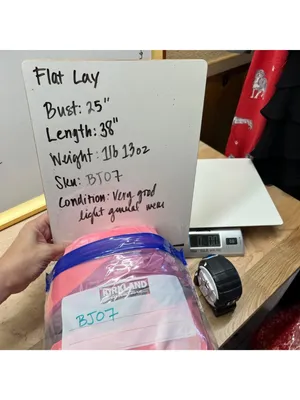 Flat Lay
Bust: 25"
Length: 38"
Weight: 1lb 13oz
Sku: BJ07
Condition: Very good
light general wear
KIRKLAND
BJ07